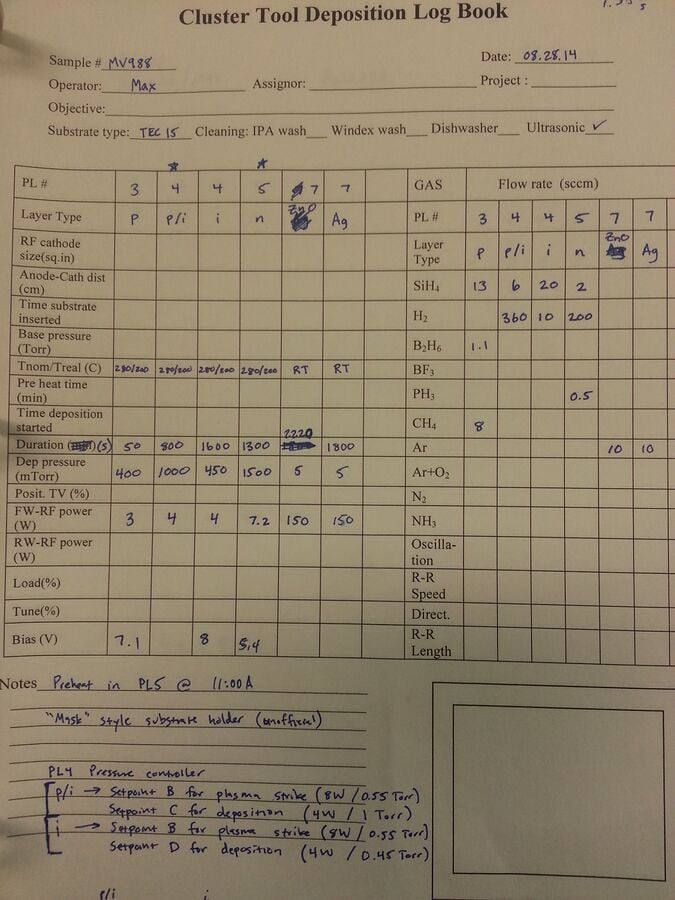 Cluster Tool Deposition Log Book
Sample # MV988 Date: 08.28.14
Operator: Max Assignor: Project :
Objective:
Substrate type: TEC 15 Cleaning: IPA wash Windex wash Dishwasher Ultrasonic ✓
PL # 3 4 4 5 7 7
Layer Type P P/i i n ZnO Ag
RF cathode size(sq.in)
Anode-Cath dist (cm)
Time substrate inserted
Base pressure (Torr)
Tnom/Treal (C) 280/200 280/200 280/200 280/200 RT RT
Pre heat time (min)
Time deposition started
Duration (s) 50 800 1600 1300 2220 1800
Dep pressure (mTorr) 400 1000 450 1500 5 5
Posit. TV (%)
FW-RF power (W) 3 4 4 7.2 150 150
RW-RF power (W)
Load(%)
Tune(%)
Bias (V) 7.1 8 5.4
GAS Flow rate (sccm)
PL # 3 4 4 5 7 7
Layer Type P P/i i n ZnO Ag
SiH₄ 13 6 20 2
H₂ 360 10 200
B₂H₆ 1.1
BF₃
PH₃ 0.5
CH₄ 8
Ar 10 10
Ar+O₂
N₂
NH₃
Oscilla-tion
R-R Speed
Direct.
R-R Length
Notes Preheat in PL5 @ 11:00A
"Mask" style substrate holder (unofficial)
PL4 Pressure controller
P/i → Setpoint B for plasma strike (8W / 0.55 Torr)
Setpoint C for deposition (4W / 1 Torr)
i → Setpoint B for plasma strike (8W / 0.55 Torr)
Setpoint D for deposition (4W / 0.45 Torr)
P/i i